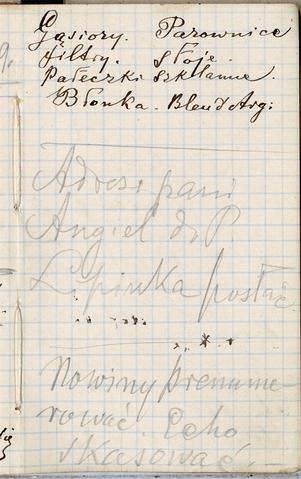 Gąsiory. Parownice
filtry. słoje.
Pałeczki szklanne.
Błonka. Blend Arg.
Adres pani
Angiel dr P.
Lipinka posłać.
Nowiny prenume
rować. Echo
skasować.